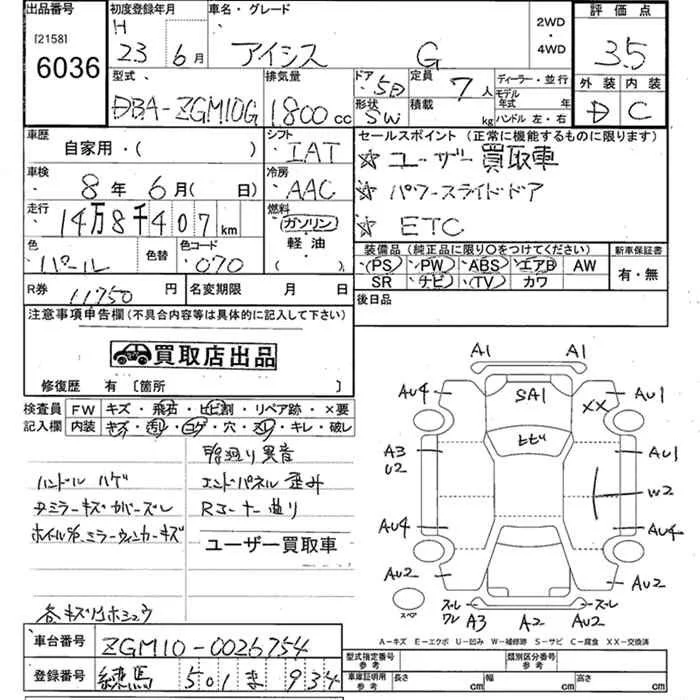 出品番号 初度登録年月 車名・グレード 2WD・4WD 評価点
[2158] 6036 H 23 6月 アイシス G 3.5
型式 排気量 ドア 定員 ディーラー・並行 外装 内装
DBA-ZGM10G 1,800cc 5D 7人 モデル年式 年 D C
形状 SW 積載 kg ハンドル 左・右
車歴 シフト セールスポイント (正常に機能するものに限ります)
自家用・( ) IAT ☆ ユーザー買取車
車検 冷房
8年6月( 日) AAC ☆ パワースライドドア
走行 燃料
14万8千407km ガソリン ☆ ETC
色 色替 色コード 軽油
パール 070 ( )
装備品 (純正品に限り○をつけてください) 新車保証書
PS PW ABS エアB AW 有・無
SR ナビ TV カワ
R券 11750円 名変期限 月 日 後日品
注意事項申告欄(不具合内容等は具体的に記入して下さい)
買取店出品
修復歴 有 〔箇所 〕
検査員 FW キズ・飛石・ヒビ割・リペア跡・×要
記入欄 内装 キズ・汚レ・コゲ・穴・スレ・キレ・破レ
異音
ハンドル ハゲ エンドパネル 歪み
ミラーキズカバーズレ Rコーナー曲り
ミラーウィンカーキズ ユーザー買取車
各キズ凹ホシュウ
A1 A1
AU4 SA1 XX AU1
A3 U2 ヒビ AU1
W2
AU4 AU4
AU2 AU2
スペア ズレ ワレ A3 A2 AU2 ズレ
A-キズ E-エクボ U-凹み W-補修跡 S-サビ C-腐食 XX-交換済
車台番号 ZGM10-0026754
登録番号 練馬 501 ま 934
型式指定番号 参考 類別区分番号 参考
車庫証明用 参考 長さ cm 幅 cm 高さ cm